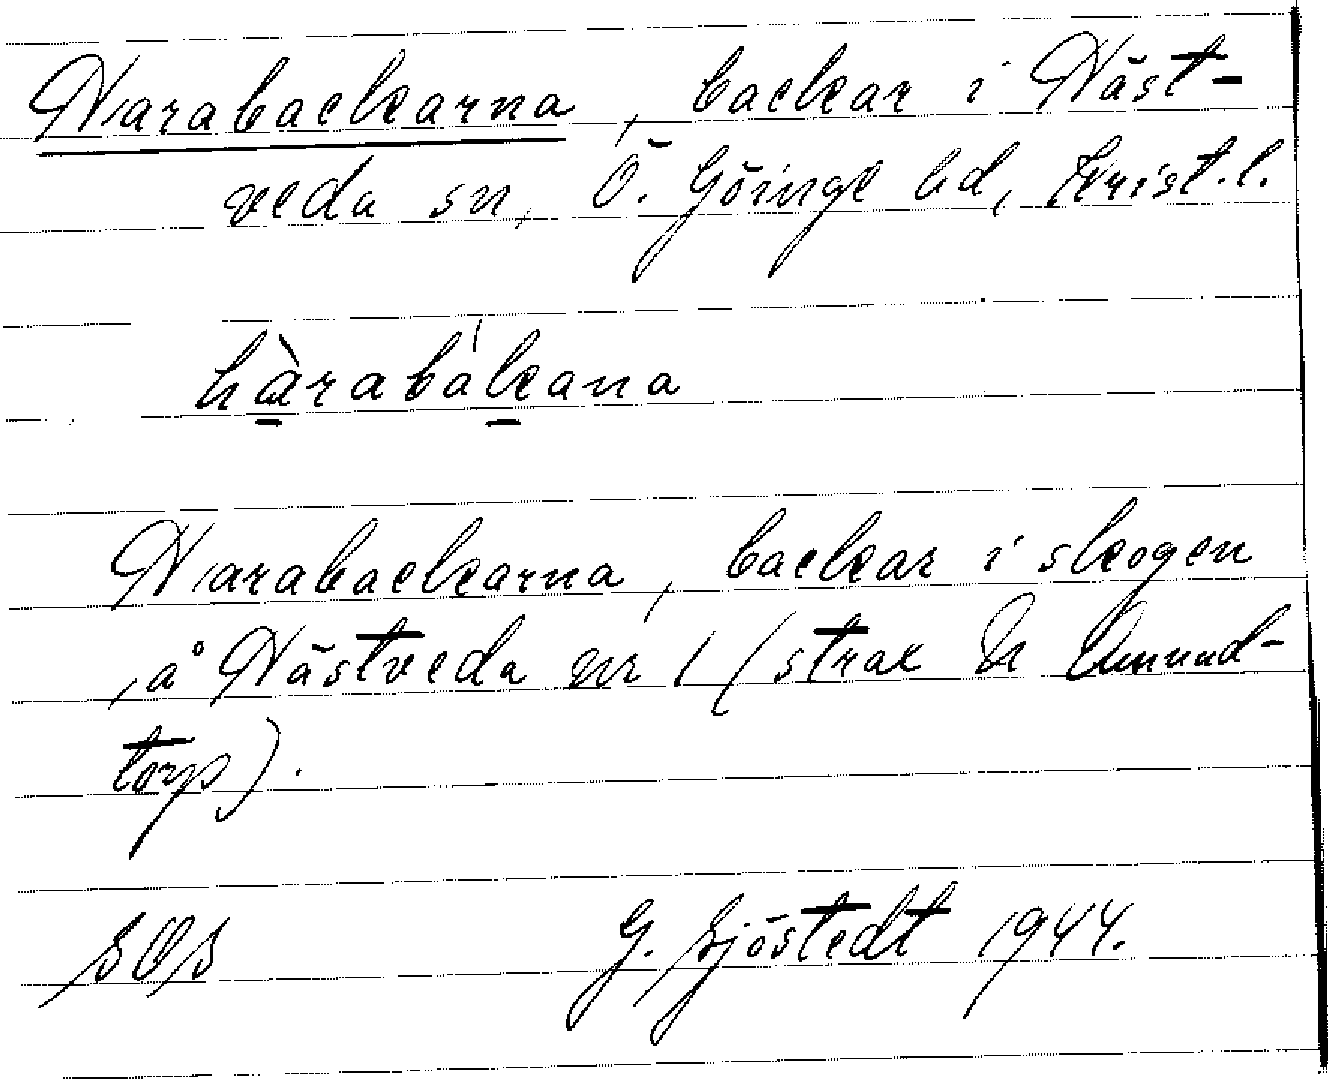 Harabackarna, backar i Häst-
veda sn, Ö. Göinge hd, Krist.l.
hàrabákana
Harabackarna, backar i skogen
, å Hästveda nr 1 (strax
torp).
SOS G. Sjöstedt 1944.